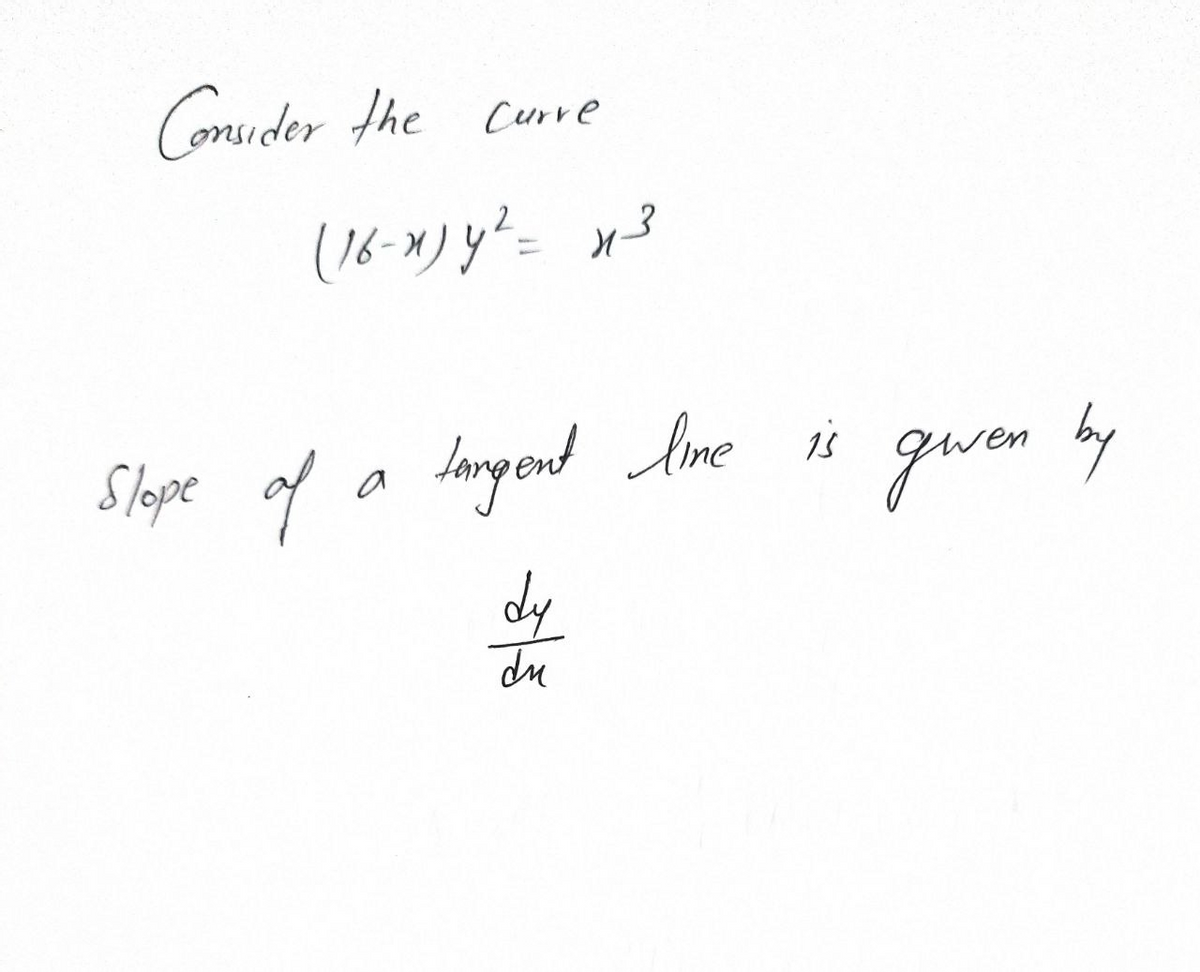 Consider the curve
(16-x) y² = x³
Slope of a tangent line is given by
dy
dx